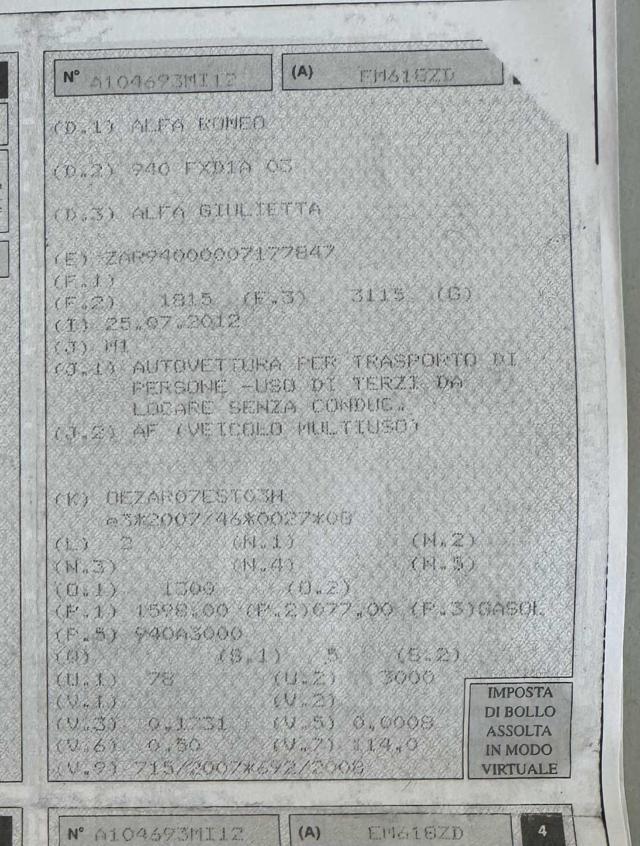 N° A104693MI12 (A) EM618ZD
(D.1) ALFA ROMEO
(D.2) 940 FXD1A 03
(D.3) ALFA GIULIETTA
(E) ZAR94000007177847
(F.1)
(F.2) 1815 (F.3) 3115 (G)
(I) 25.07.2012
(J) M1
(J.1) AUTOVETTURA PER TRASPORTO DI
PERSONE -USO DI TERZI DA
LOCARE SENZA CONDUC.
(J.2) AF (VEICOLO MULTIUSO)
(K) OEZAR07EST03H
e3*2007/46*0027*08
(L) 2 (N.1) (N.2)
(N.3) (N.4) (N.5)
(O.1) 1300 (O.2)
(P.1) 1598.00 (P.2)077.00 (P.3)GASOL
(P.5) 940A3000
(Q) (S.1) 5 (S.2)
(U.1) 78 (U.2) 3000
(V.1) (V.2)
(V.3) 0.1731 (V.5) 0.0008
(V.6) 0.50 (V.7) 114.0
(V.9) 715/2007*692/2008
IMPOSTA
DI BOLLO
ASSOLTA
IN MODO
VIRTUALE
N° A104693MI12 (A) EM618ZD 4